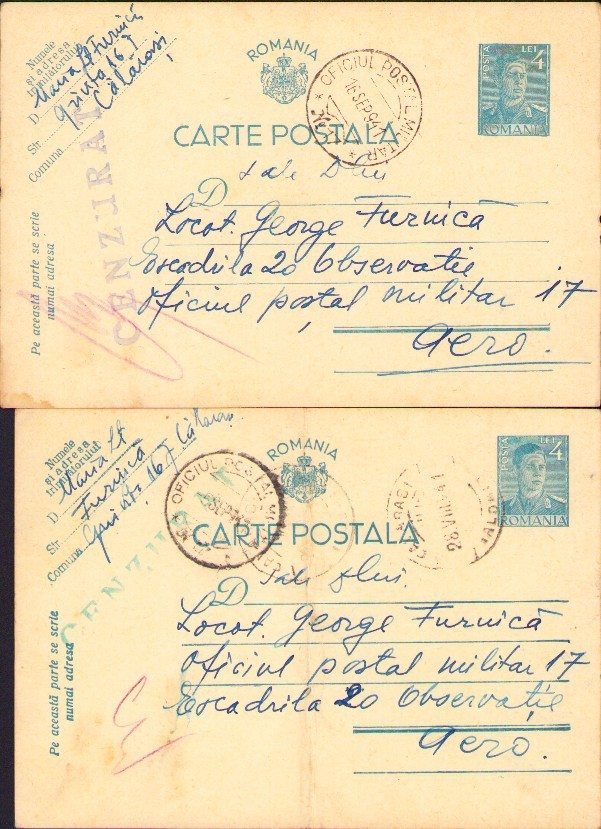 Numele
și adresa
trimițătorului
D. Maria St Furnică
Str. Grivița 167
Comuna Călărași
ROMANIA
POSTA LEI 4
ROMANIA
OFICIUL POSTAL MILITAR
16 SEP 941
CARTE POSTALA
CENZURAT
Pe această parte se scrie
numai adresa
D Sale Dlui
Locot. George Furnică
Escadrila 20 Observație
Oficiul poștal militar 17
Aero.
Numele
și adresa
trimițătorului
D. Maria St
Furnica
Str. Grivița 167 Călărași
Comuna
ROMANIA
POSTA LEI 4
ROMANIA
OFICIUL POSTAL
CARTE POSTALA
CENZURAT
Pe această parte se scrie
numai adresa
D Sale Dlui
Locot. George Furnică
Oficiul postal militar 17
Escadrila 20 Observație
Aero.